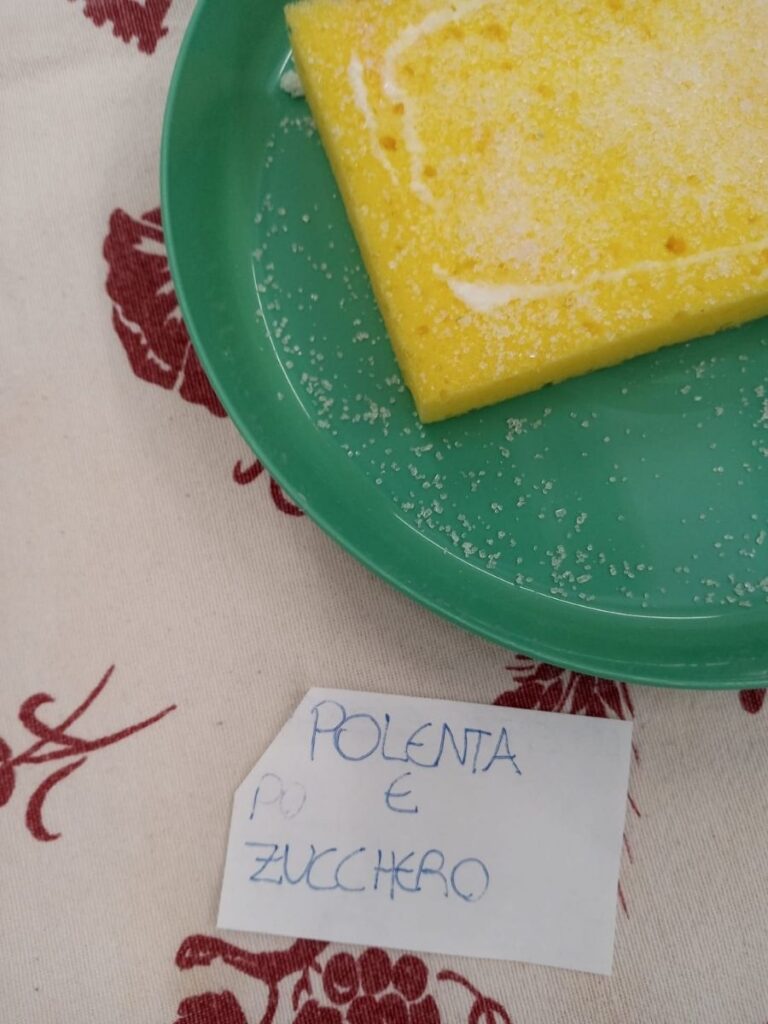 POLENTA
PO E
ZUCCHERO